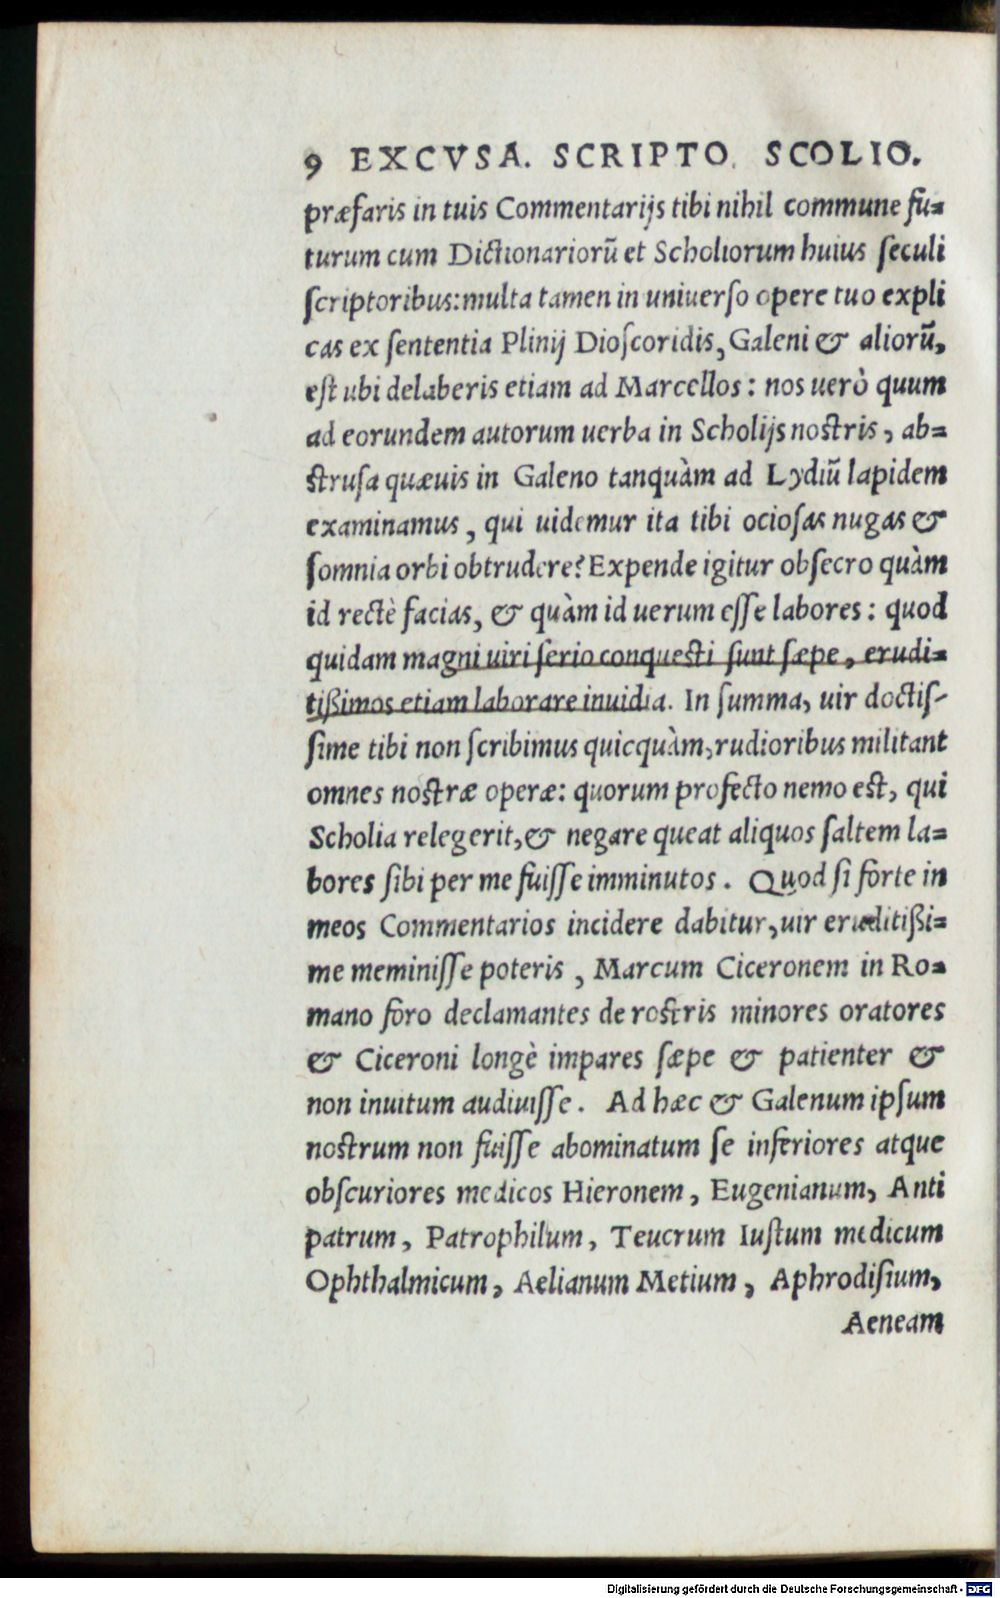 9 EXCVSA. SCRIPTO. SCOLIO.
præfaris in tuis Commentarijs tibi nihil commune fu=
turum cum Dictionariorũ et Scholiorum huius seculi
scriptoribus: multa tamen in uniuerso opere tuo expli
cas ex sententia Plinij Dioscoridis, Galeni & aliorũ,
est ubi delaberis etiam ad Marcellos: nos uerò quum
ad eorundem autorum uerba in Scholijs nostris, ab=
strusa quæuis in Galeno tanquàm ad Lydiũ lapidem
examinamus, qui uidemur ita tibi ociosas nugas &
somnia orbi obtrudere? Expende igitur obsecro quàm
id rectè facias, & quàm id uerum esse labores: quod
quidam magni uiri serio conquesti sunt sæpe, erudi=
tißimos etiam laborare inuidia. In summa, uir doctis-
sime tibi non scribimus quicquàm, rudioribus militant
omnes nostræ operæ: quorum profecto nemo est, qui
Scholia relegerit, & negare queat aliquos saltem la=
bores sibi per me fuisse imminutos. Quod si forte in
meos Commentarios incidere dabitur, uir eruditißi=
me meminisse poteris, Marcum Ciceronem in Ro=
mano foro declamantes de rostris minores oratores
& Ciceroni longè impares sæpe & patienter &
non inuitum audiuisse. Ad hæc & Galenum ipsum
nostrum non fuisse abominatum se inferiores atque
obscuriores medicos Hieronem, Eugenianum, Anti
patrum, Patrophilum, Teucrum Iustum medicum
Ophthalmicum, Aelianum Metium, Aphrodisium,
Aeneam
Digitalisierung gefördert durch die Deutsche Forschungsgemeinschaft - DFG